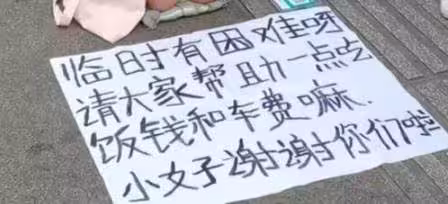 临时有困难呀
请大家帮助一点吃
饭钱和车费嘛.
小女子谢谢你们啦